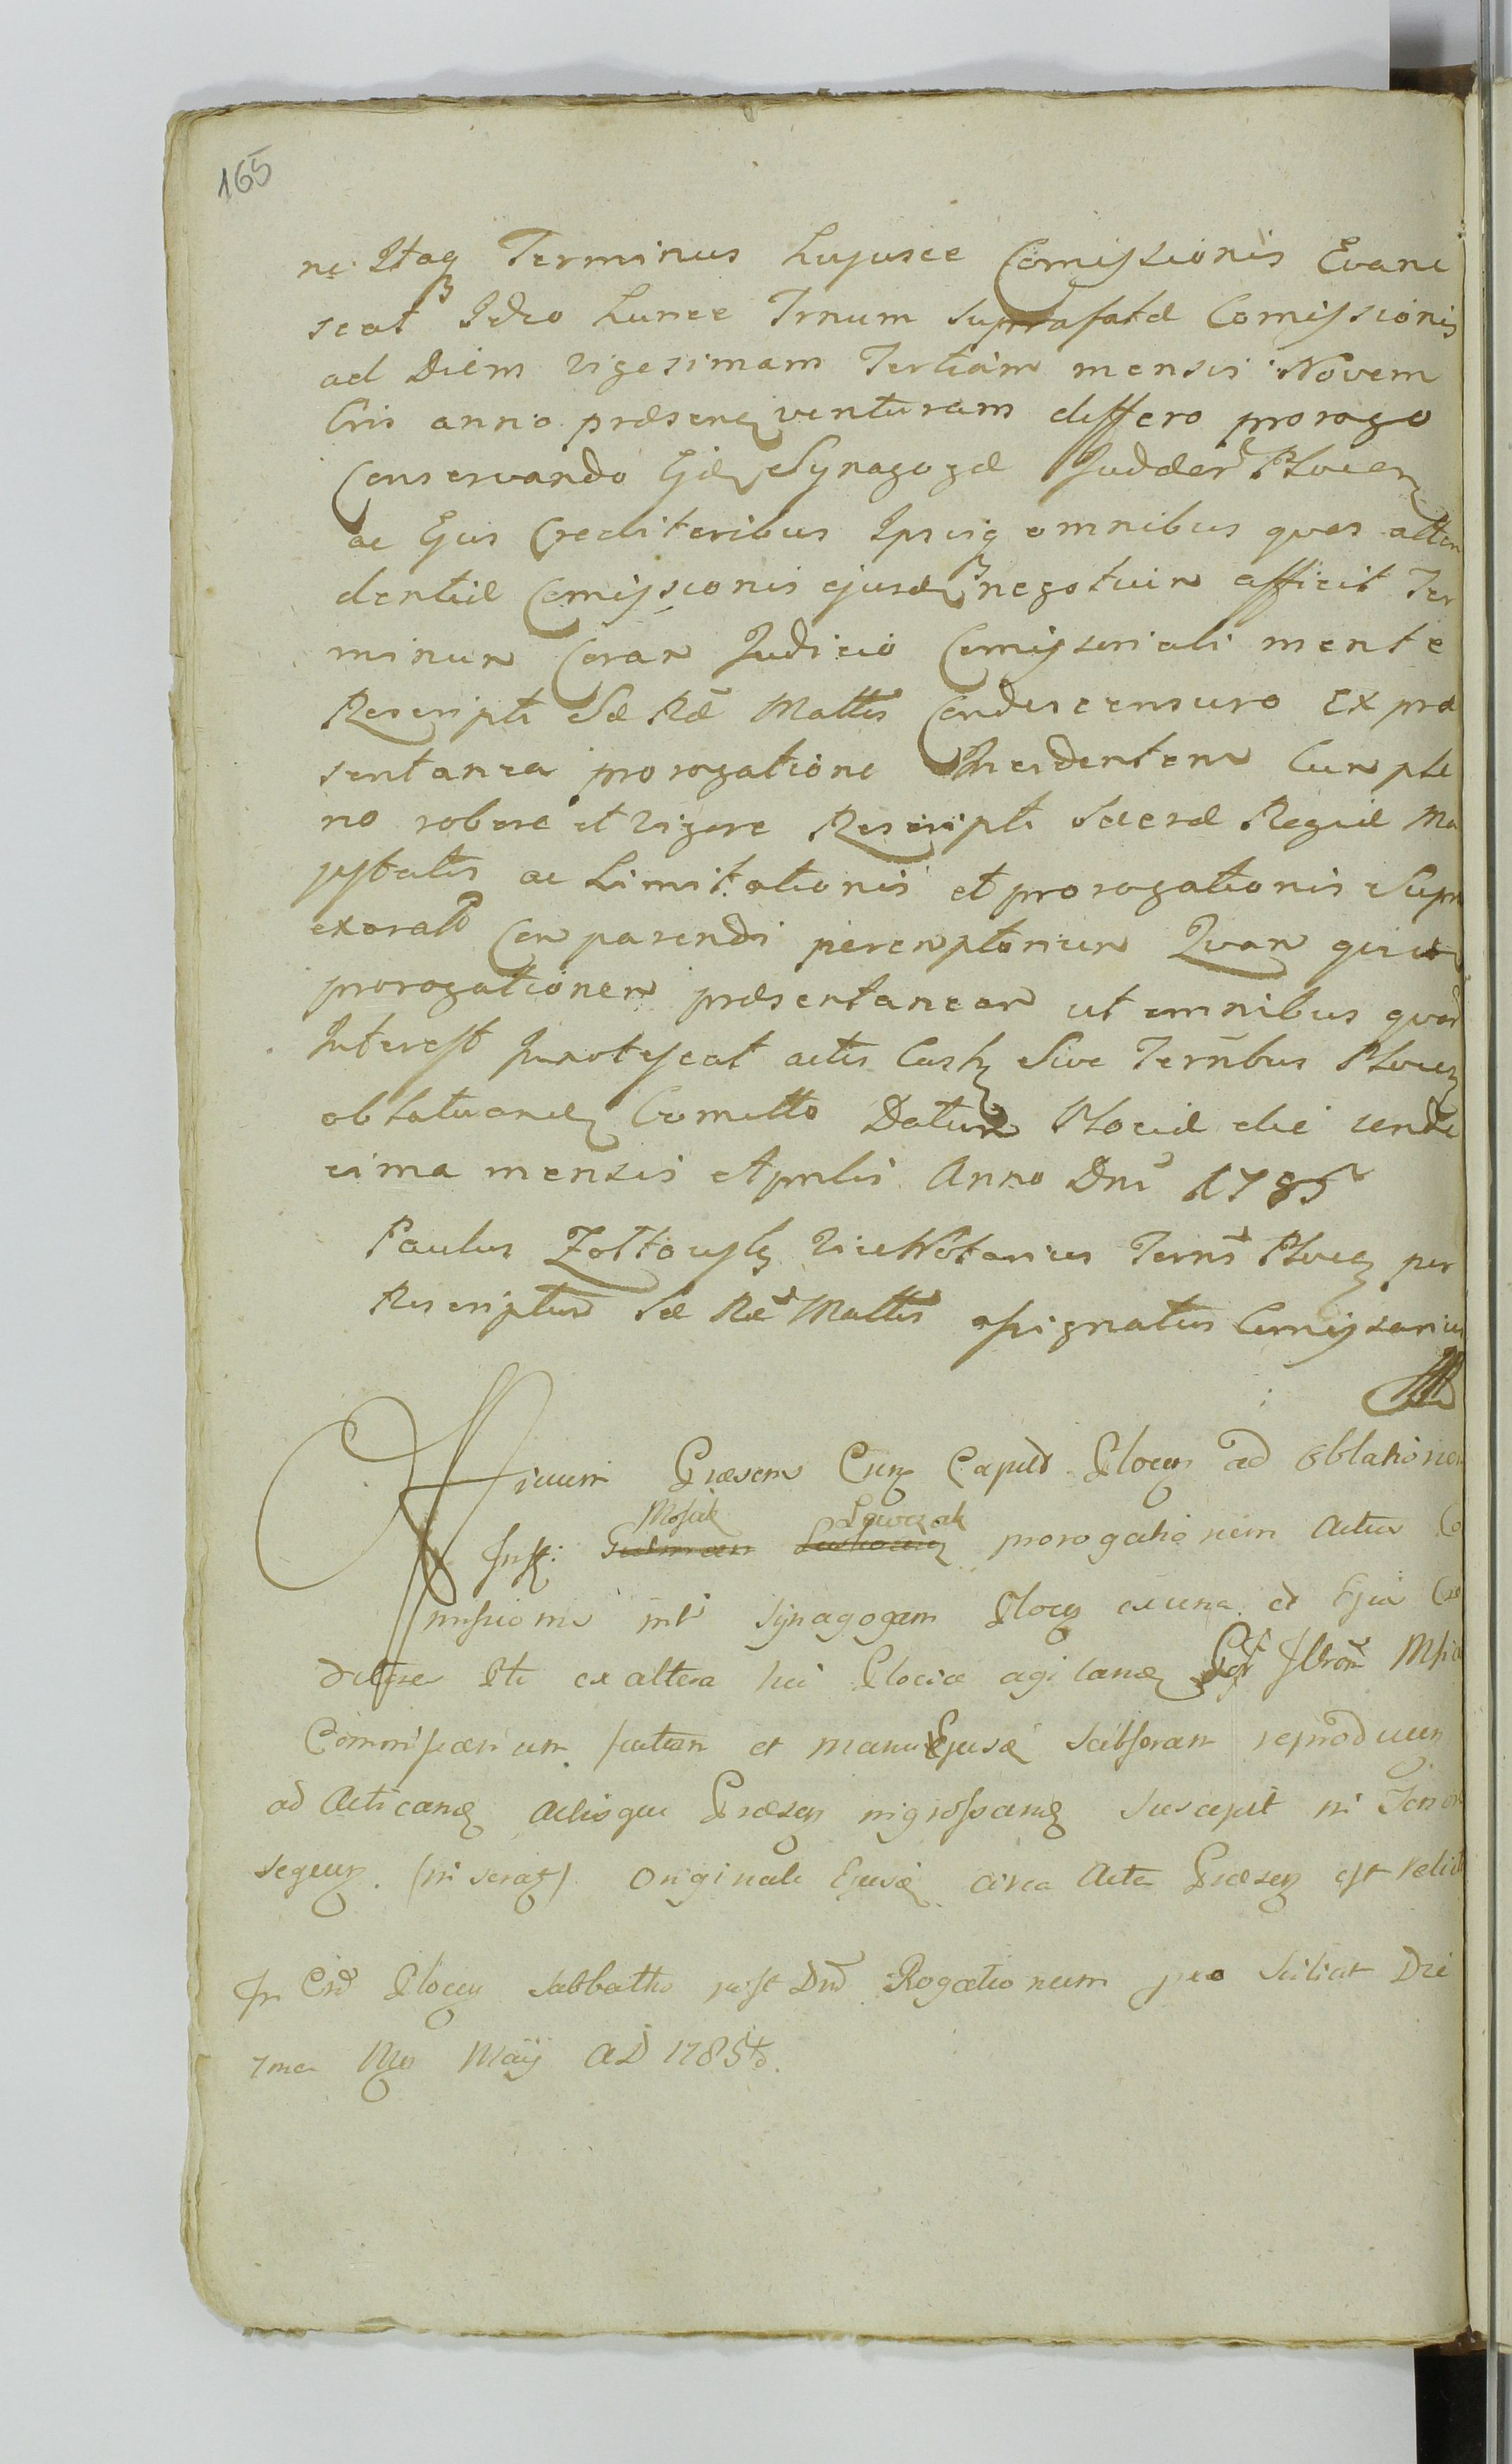 165
ne Itaq Terminus hujusce Comissionis Evane
scat Ideo hunce Trnum suprafatæ Comissionis
ad Diem vigesimam Tertiam mensis Novem
bris anno præsenꝫ venturam differo prorogo
Conservando Gñlꝫ Synagogæ Judæor Plocenꝫ
ac Ejus Creditoribus Ipsisq omnibus quos atten
dentiæ Comissionis ejusdꝫ negotium afficit Ter
minum Coram Judicio Comissoriali mente
Rescripti Sæ Ræ Mattis Condescensuro Ex præ
sentanea prorogatione Incidentem Cum ple
no robore et vigore Rescripti Sacræ Regiæ Ma
jestatis ac Limitationis et prorogationis Supra
exarato Comparendi peremptorium Quam quidem
prorogationem præsentaneam ut omnibus quorum
Interest Innotescat actis Castꝫ Sive Ternbus Plocenꝫ
oblatuandꝫ Comitto Datum Plociæ die unde
cima mensis Aprilis Anno Dni 1785
Paulus Zołtowsky ViceNotarius Terris Plocenꝫ per
Rescriptum Sæ Ræ Mattis assignatus Comissarius
Officium Præsens Crnꝫ Capitl Plocen ad Oblationem
Mosiek Lewczak
Infid: prorogationem Actus Co
missionis inter Synagogam Plocenꝫ ex una et Ejus Cre
ditores Pte ex altera hic Plociæ agitandꝫ
Commissarium factam et manu Ejusd subscram reproducen
ad Acticandꝫ Actisque Præsen ingrossandꝫ suscepit in Tenore
sequenꝫ. (inseratꝫ) Originale Ejusd circa Acta Præsenꝫ est relict
In Crd Plocen Sabbatho post Dnd Rogationum pro scilicet Die
7ma Mens Maij AD 1785to.